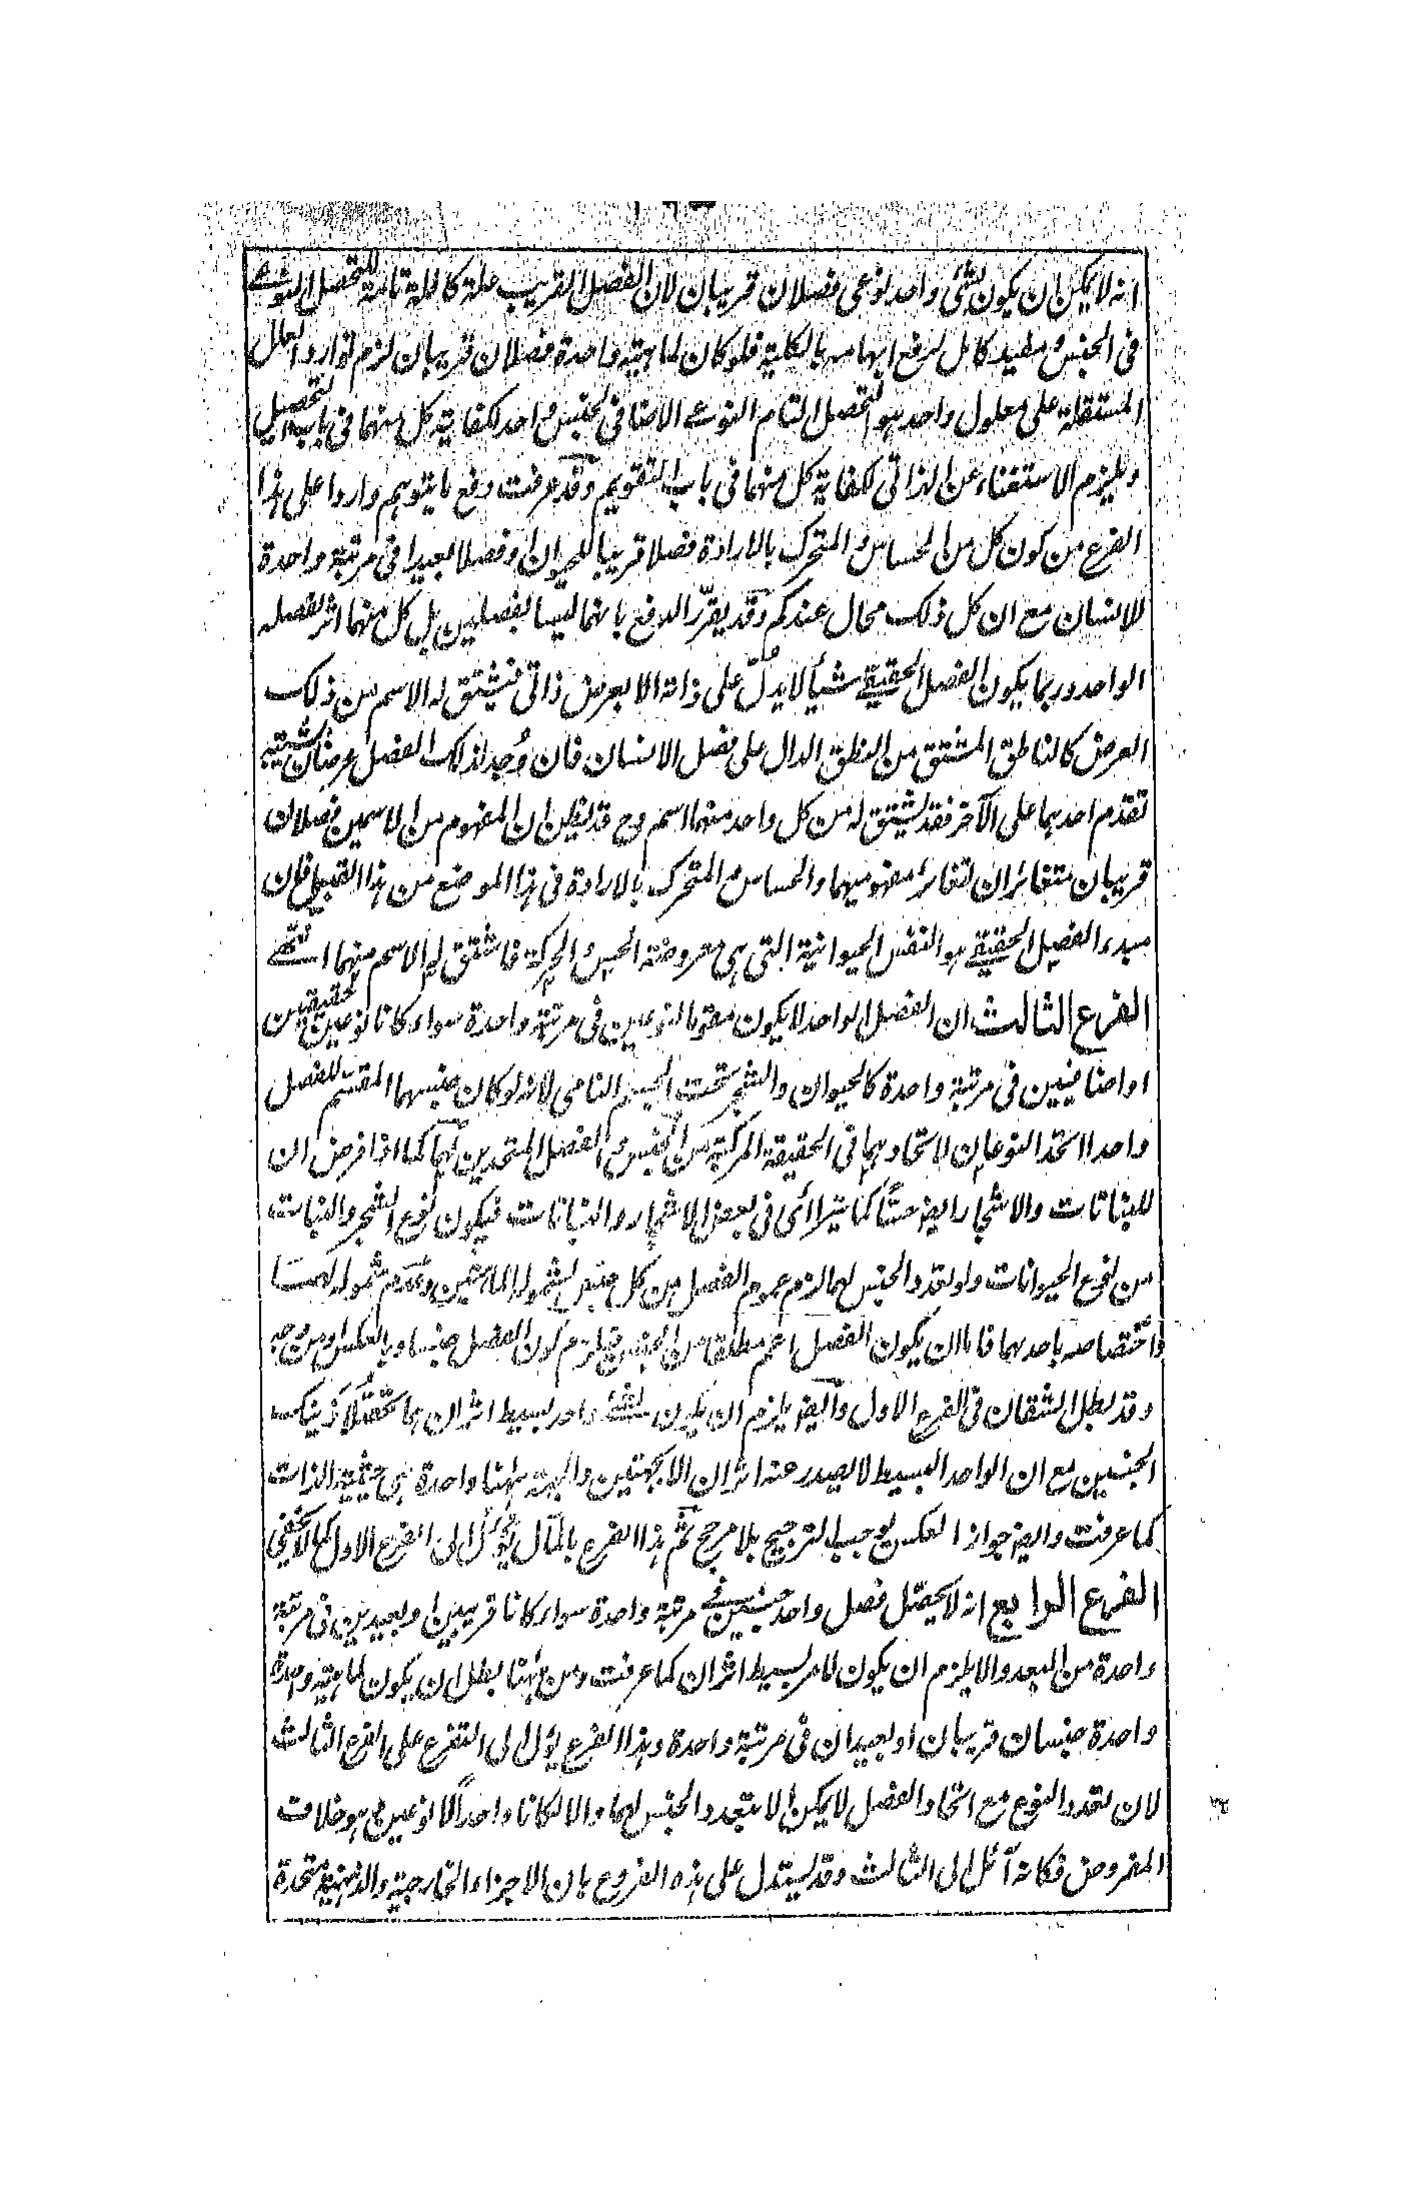 انه لا يمكن ان يكون لشئ واحد نوعى فصلان قريبان لان الفصل القريب علة كاملة تامة للتحصل النوعے
فى الجنس و مفيد كامل لرفع ابهامه بالكلية فلو كان لماهية واحدة فصلان قريبان لزم توارد العلل
المستقلة على معلول واحد هو التحصل التام النوعے الاضافى للجنس و احد لكفاية كل منهما فى باب التحصيل
و يلزم الاستغناء عن الذاتى لكفاية كل منهما فى باب التقويم و قد عرفت دفع ما يتوهم واردا على هذا
الفرع من كون كل من الحساس و المتحرك بالارادة فصلا قريبا للحيوان او فصلا بعيدا فى مرتبة واحدة
للانسان مع ان كل ذلك محال عندكم و قد يقرر الدفع بانهما ليسا بفصلين بل كل منهما اثر لفصله
الواحد و ربما يكون الفصل الحقيقے شيأ لا يدل على ذاته الا بعرض ذاتى فيشتق له الاسم من ذلك
العرض كالناطق المشتق من النطق الدال على فصل الانسان فان وجد لذلك الفصل عرضان يشتبه
تقدم احدهما على الآخر فقد يشتق له من كل واحد منهما اسم و ح قد يظن ان المفهوم من الاسمين فصلان
قريبان متغائران لتغائر مفهوميهما و الحساس و المتحرك بالارادة فى هذا الموضع من هذا القبيل فان
مبدء الفصل الحقيقے هو النفس الحيوانية التى هى معروضة الحس و الحركة فاشتق له الاسم منهما انتهے
الفرع الثالث ان الفصل الواحد لا يكون مقوما لنوعين فى مرتبة واحدة سواء كانا نوعين حقيقيين
او اضافيين فى مرتبة واحدة كالحيوان والشجر تحت الجسم النامى لانه لو كان جنسهما المقسم للفصل
واحدا اتحد النوعان لاتحادهما فى الحقيقة المركبة من الجنس و الفصل المتحدين لهما كما اذا فرض ان
للنباتات والاشجار ايضا حسًّا كما يتراأى فى بعض الاشجار و النباتات فيكون نوع الشجر والنبات
من نوع الحيوانات و لو تعدد الجنس لهما لزم عموم الفصل من كل جنس لشموله الماهيتين و عدم شموله لهما
و اختصاصه باحدهما فاما ان يكون الفصل اعم مطلقا من الجنس فيلزم كون الفصل جنسا و بالعكس او من وجه
و قد بطل الشقان فى الفرع الاول و ايضا يلزم ان يكون لشئے واحد بسيط اثران هما تحصُّلا ذينك
الجنسين مع ان الواحد البسيط لا يصدر عنه اثران الا بجهتين والجهة ههنا واحدة هى حيثية الذات
كما عرفت و ايضا جواز العكس يوجب الترجيح بلا مرجح ثم هذا الفرع بالمآل يؤل الى الفرع الاول كما لا يخفى
الفرع الرابع انه لا يحصّل فصل واحد جنسين فے مرتبة واحدة سواء كانا قريبين او بعيدين فى مرتبة
واحدة من البعد و الا يلزم ان يكون لامر بسيط اثران كما عرفت و من ههنا بطل ان يكون لماهية واحدة
واحدة جنسان قريبان او بعيدان فى مرتبة واحدة و هذا الفرع يؤل الى التفرع على الفرع الثالث
لان تعدد النوع مع اتحاد الفصل لا يمكن الا بتعدد الجنس لهما والا لكانا واحدًا لا نوعين و هو خلاف
المفروض فكانه آئل الى الثالث و قد يستدل على هذه الفروع بان الاجزاء الخارجية والذهنية متحدة